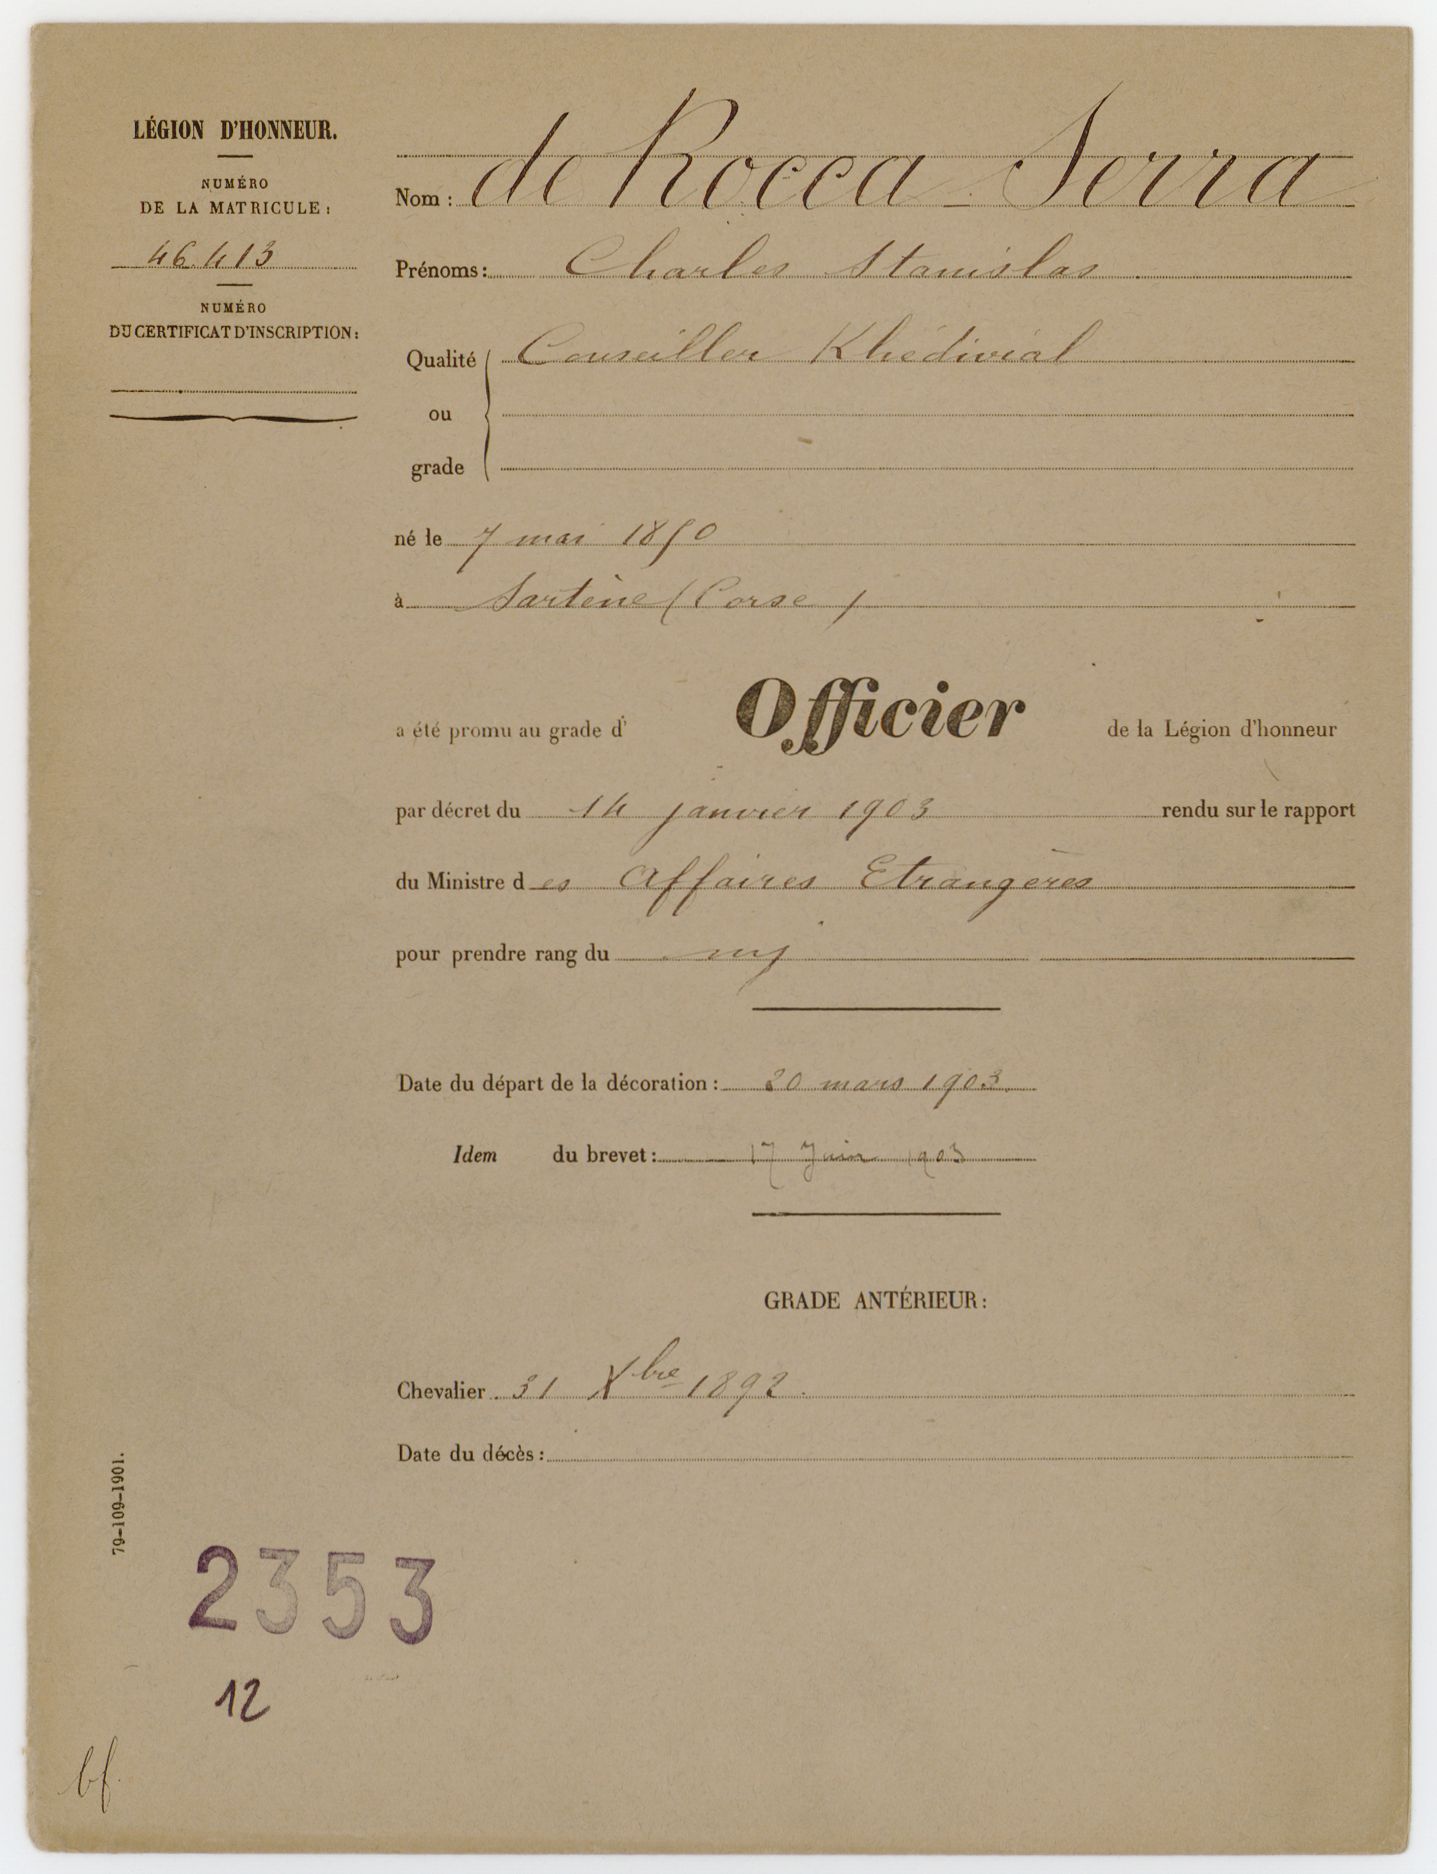 LÉGION D'HONNEUR.
NUMÉRO
DE LA MATRICULE :
46.413
NUMÉRO
DU CERTIFICAT D'INSCRIPTION :
Nom : de Rocca-Serra
Prénoms : Charles Stanislas
Qualité Conseiller Khédivial
ou
grade
né le 7 mai 1850
à Sartène (Corse)
a été promu au grade d' Officier de la Légion d'honneur
par décret du 14 janvier 1903 rendu sur le rapport
du Ministre des Affaires Etrangères
pour prendre rang du
Date du départ de la décoration : 20 mars 1903.
Idem du brevet : 17 Juin 1903
GRADE ANTÉRIEUR :
Chevalier . 31 Xbre 1892.
Date du décès :
79-109-1901.
2353
12
bf.